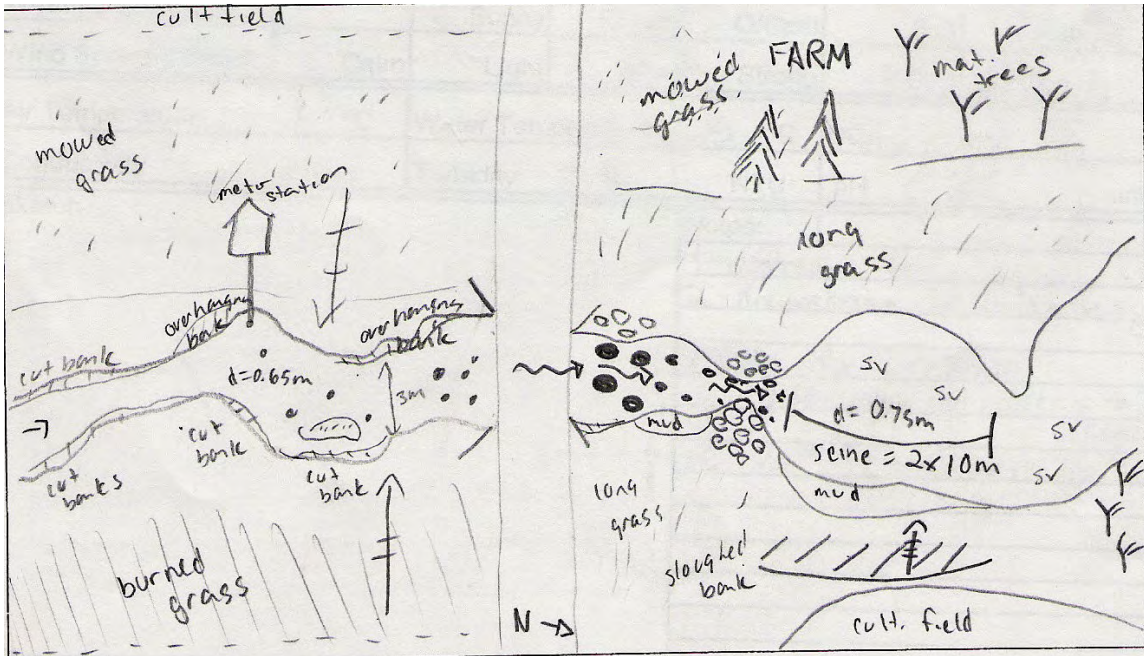 cult field
mowed
grass
metr
station
overhanging
bank
overhang
bank
cut bank
d=0.65m
3m
cut
bank
cut
banks
cut
bank
burned
grass
N
mowed
grass
FARM
mat.
trees
long
grass
sv
sv
sv
sv
d= 0.75m
seine = 2x10m
mud
mud
long
grass
sloughed
bank
cult. field